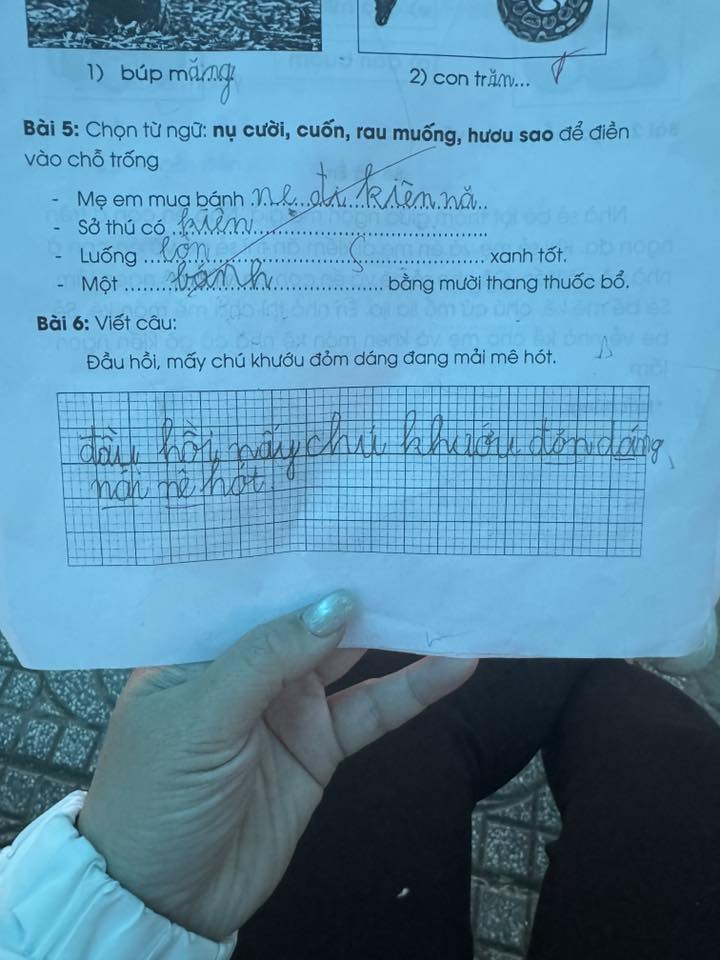 1) búp măng
2) con trăn...
Bài 5: Chọn từ ngữ: nụ cười, cuốn, rau muống, hươu sao để điền
vào chỗ trống
- Mẹ em mua bánh ne đi kiên nă
- Sở thú có kiên
- Luống lợn xanh tốt.
- Một bánh bằng mười thang thuốc bổ.
Bài 6: Viết câu:
Đầu hồi, mấy chú khướu đỏm dáng đang mải mê hót.
đầu hồi, nấy chú khướu đỏn dáng,
nải nê hót.